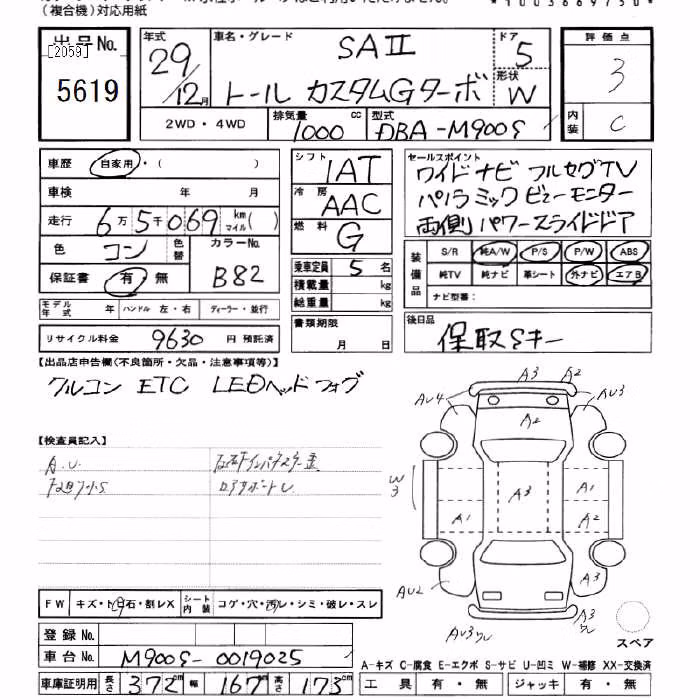 (複合機)対応用紙
出品No.
[2059]
5619
年式
29
12月
車名・グレード
SAⅡ
トール カスタムGターボ
ドア
5
形状
W
評価点
3
内装
C
2WD・4WD
排気量
1000 cc
型式
DBA-M900S
車歴
自家用・( )
車検 年 月
走行 6万5千069 km マイル( )
色 コン 色替
カラーNo.
B82
保証書 有・無
モデル年式 年 ハンドル 左・右 ディーラー・並行
リサイクル料金 9630 円 預託済
シフト
IAT
冷房
AAC
燃料
G
乗車定員 5 名
積載量 kg
総重量 kg
書類期限
月 日
セールスポイント
ワイドナビ フルセグTV
パノラミックビューモニター
両側パワースライドドア
装備品
S/R 純A/W P/S P/W ABS
純TV 純ナビ 革シート 外ナビ エアB
ナビ型番:
後日品
保取Sキー
【出品店申告欄(不良箇所・欠品・注意事項等)】
クルコン ETC LEDヘッド フォグ
【検査員記入】
A.U.
FW キズ・ト石・割レX
シート内装 コゲ・穴・汚レ・シミ・破レ・スレ
登録No.
車台No. M900S-0019025
車庫証明用 長さ 372cm 幅 167cm 高さ 173cm
A3 A2
AU4 AU3
A2
W3
A3
A1
A1 A2
AU2
A3
A3
スペア
A-キズ C-腐食 E-エクボ S-サビ U-凹ミ W-補修 XX-交換済
工具 有・無 ジャッキ 有・無